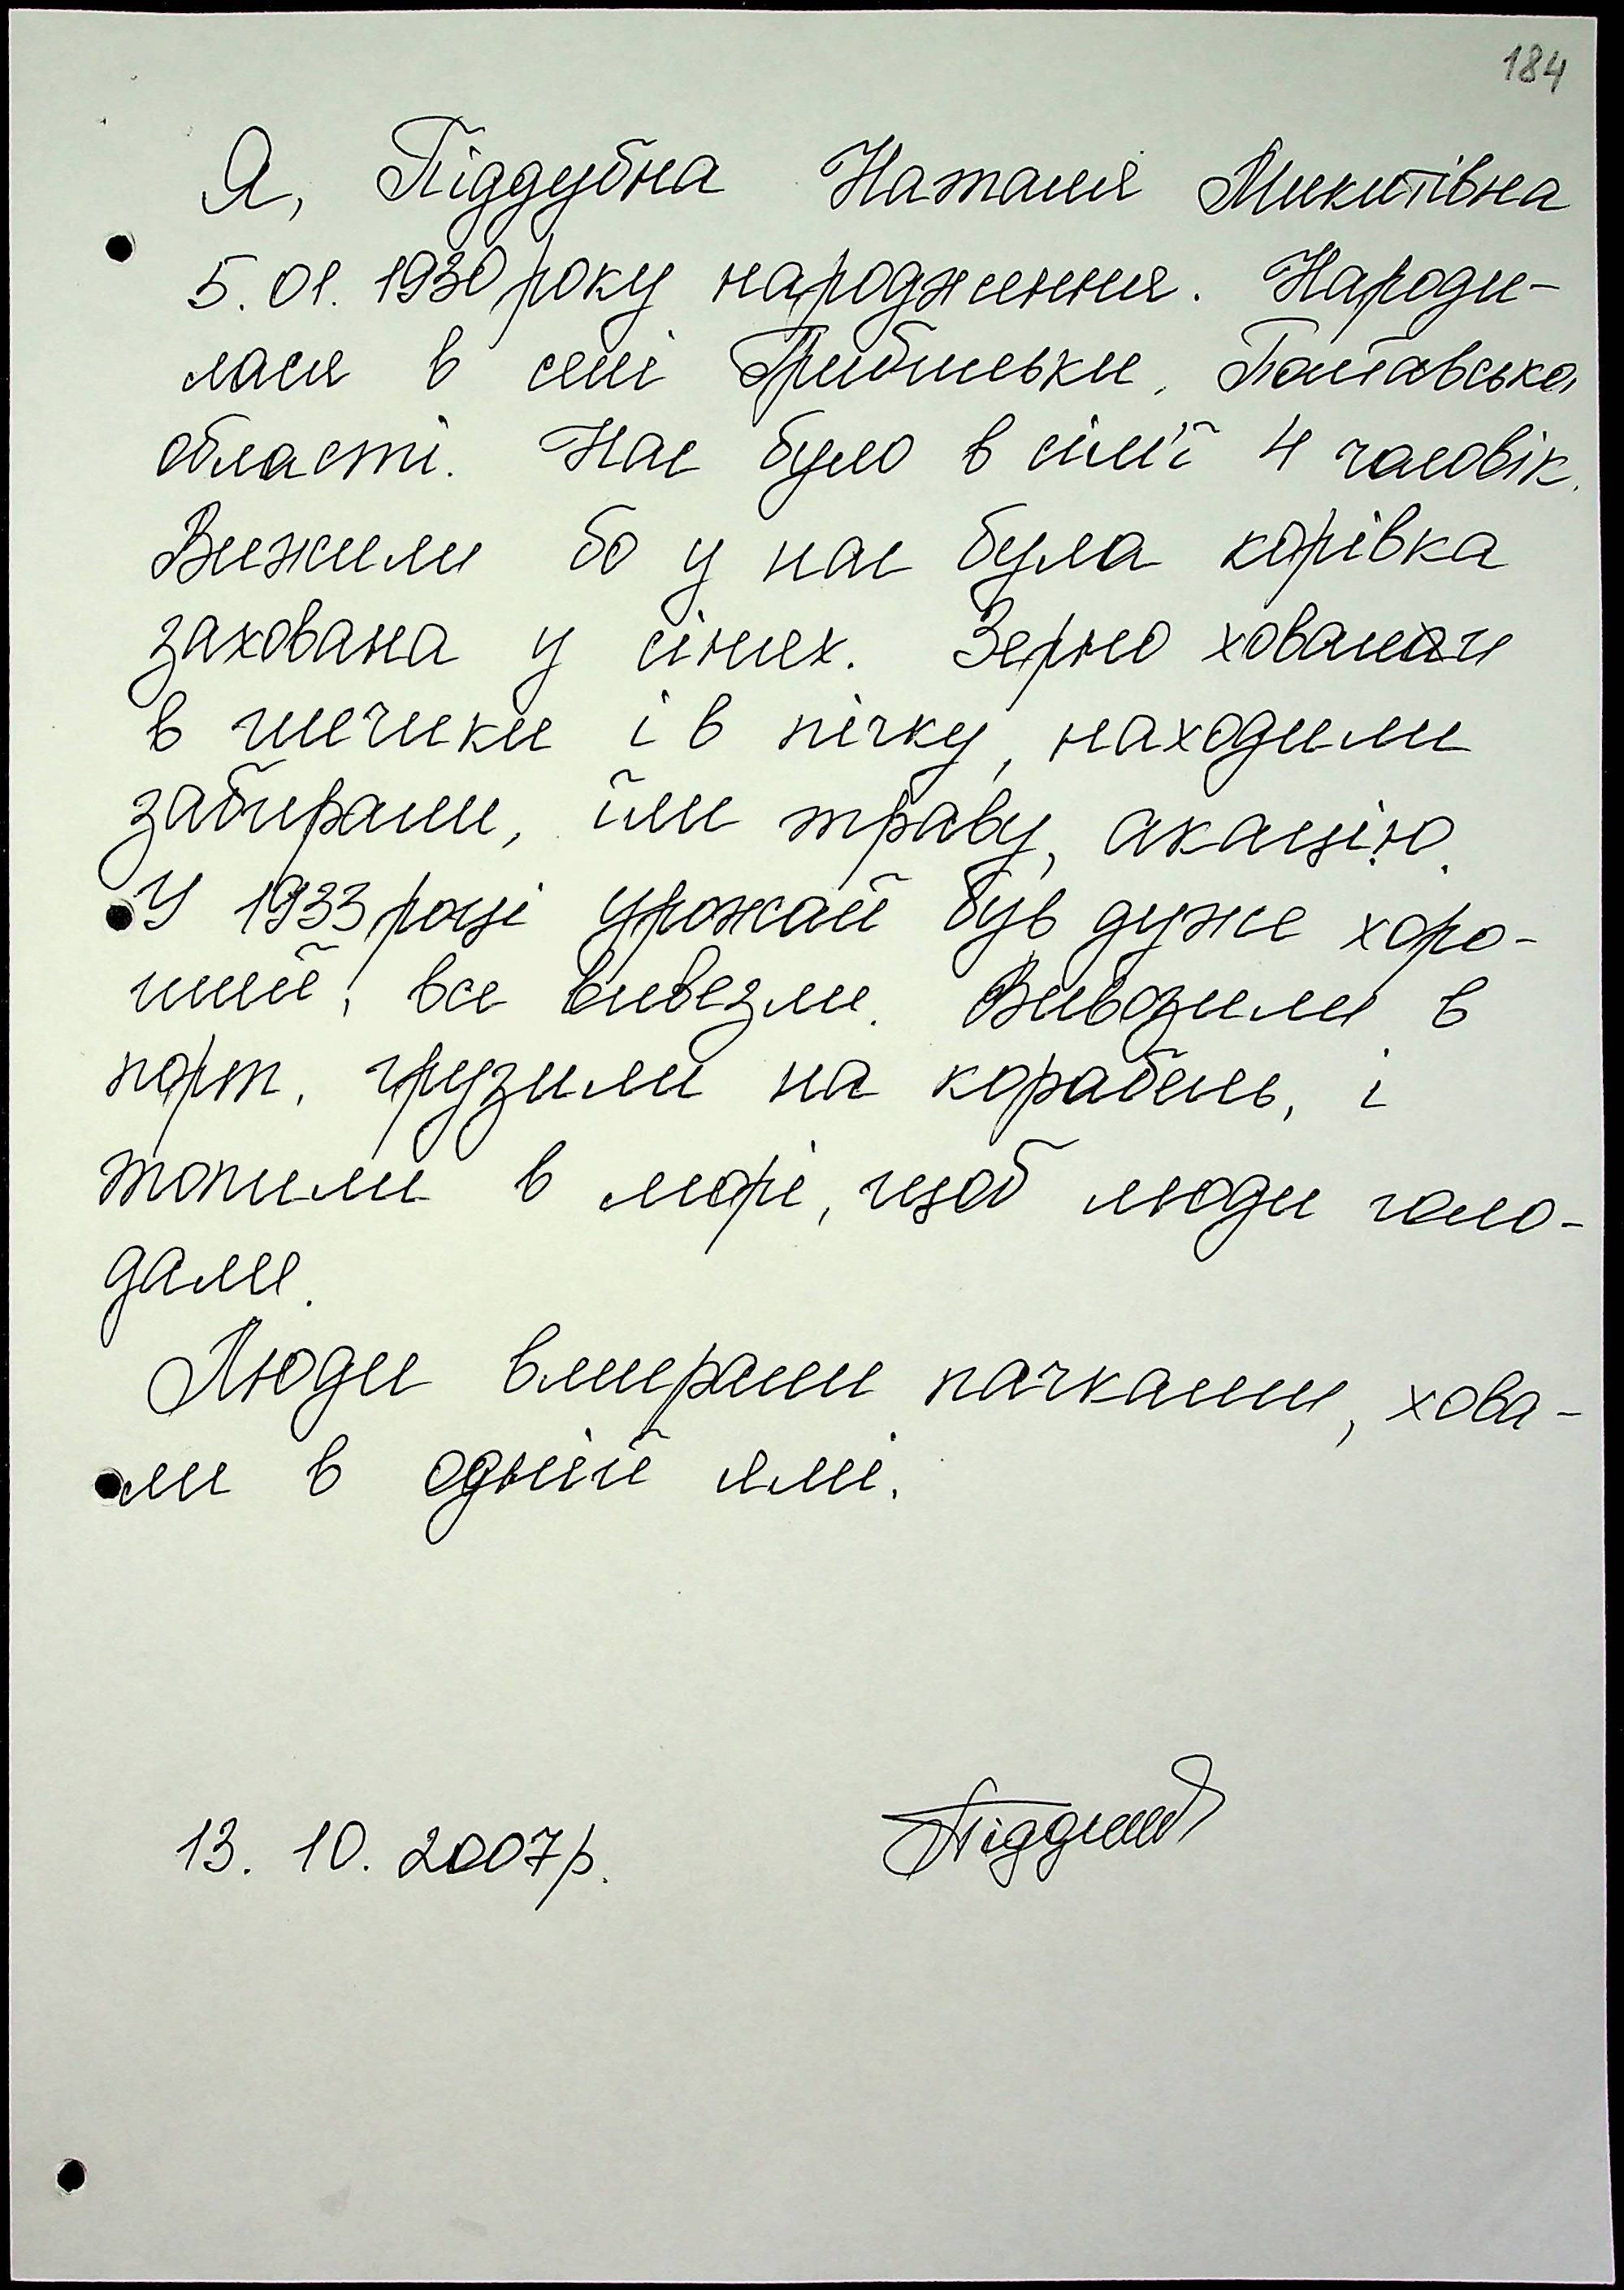 184
Я, Піддубна Наталія Микитівна
5.01.1930 року народження. Народи-
лася в селі Грибиньки, Полтавська
області. Нас було в сім'ї 4 чоловік.
Вижили бо у нас була корівка
захована у сінях. Зерно ховали
в глечики і в пічку, находили
забирали, їли траву, акацію.
У 1933 році урожай був дуже хоро-
ший, все вивезли. Вивозили в
порт, грузили на корабель, і
топили в морі, щоб люди голо-
дали.
Люди вмирали пачками, хова-
ли в одній ямі.
13. 10. 2007р.